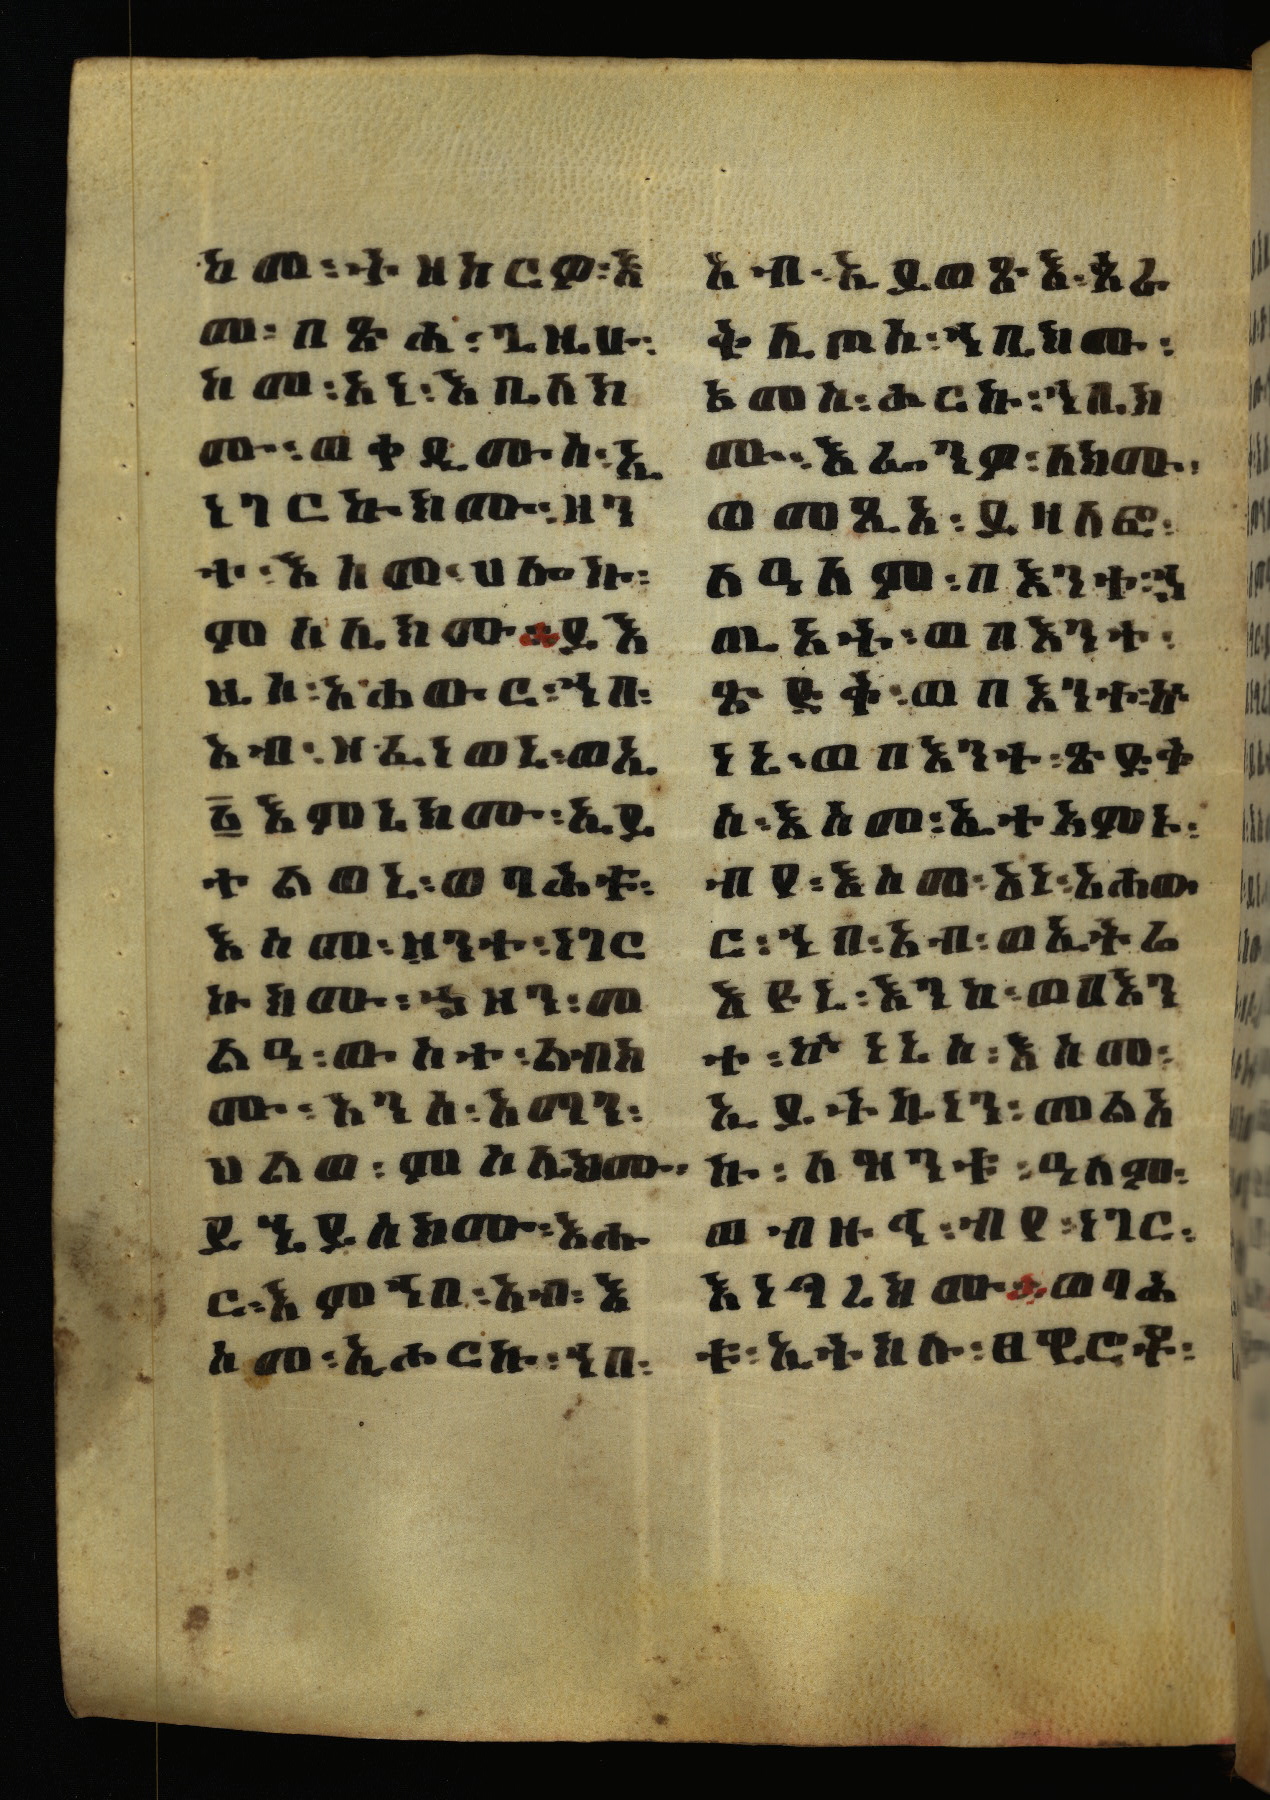 ከመ፡ትዝክርዎ፡እ
መ፡በጽሐ፡ጊዜሁ፡
ከመ፡አነ፡እቤለክ
ሙ፡ወቀዲሙሰ፡ኢ
ነገርኩክሙ፡ዘን
ተ፡እስመ፡ሀሎኩ፡
ምስሌክሙ።ይእ
ዜሰ፡አሐውር፡ኀበ፡
አብ፡ዘፈነወኒ፡ወኢ
፩እምኔክሙ፡ኢይ
ተልወኒ፡ወባሕቱ፡
እስመ፡ዘንተ፡ነገር
ኩክሙ፡ኃዘን፡መ
ልዓ፡ውስተ፡ልብክ
ሙ፡አንሰ፡አማን፡
ህልው፡ምስሌክሙ፡
ይኄይሰክሙ፡እሐ
ር፡እምኀበ፡አብ፡እ
ስመ፡ኢሖርኩ፡ኀበ፡
አብ፡ኢይወጽእ፡ጰራ
ቅሊጦስ፡ኀቤክሙ፡
እመሰ፡ሖርኩ፡ኀቤክ
ሙ፡እፌንዎ፡ለክሙ፡
ወመጺኦ፡ይዘለፎ፡
ለዓለም፡በእንተ፡ኃ
ጢአት፡ወበእንተ፡
ጽድቅ፡ወበእንተ፡ኵ
ነኔ፡ወበእንተ፡ጽድቅ
ሰ፡እስመ፡ኢተአምኑ፡
ብየ፡እስመ፡አነ፡አሐው
ር፡ኀበ፡አብ፡ወኢትሬ
እዩኒ፡እንከ፡ወበእን
ተ፡ኵነኔሰ፡እስመ፡
ኢይትኴነን፡መልአ
ኩ፡ለዝንቱ፡ዓለም፡
ወብዙኅ፡ብየ፡ነገር፡
እነግረክሙ።ወባሕ
ቱ፡ኢትክሉ፡ፀዊሮቶ፡